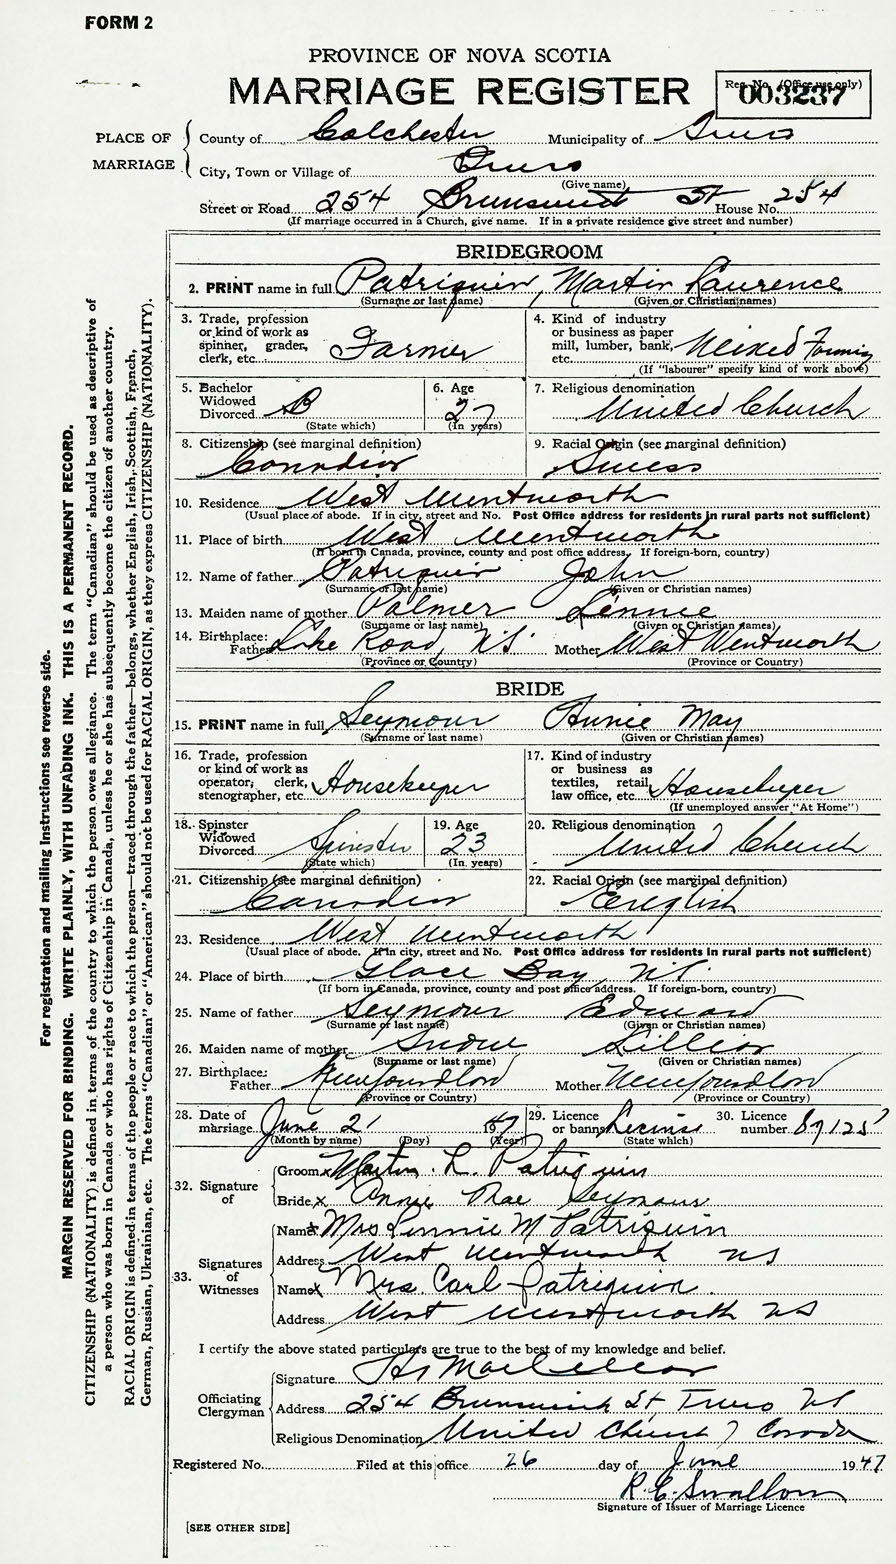 FORM 2
PROVINCE OF NOVA SCOTIA
MARRIAGE REGISTER
Reg. No. (Office use only)
003237
PLACE OF MARRIAGE
County of Colchester Municipality of Truro
City, Town or Village of Truro
(Give name)
Street or Road 254 Brunswick St House No. 254
(If marriage occurred in a Church, give name. If in a private residence give street and number)
BRIDEGROOM
2. PRINT name in full Patriquin, Martin Laurence
(Surname or last name) (Given or Christian names)
3. Trade, profession or kind of work as spinner, grader, clerk, etc. Farmer
4. Kind of industry or business as paper mill, lumber, bank, etc. Mixed Farming
(If "labourer" specify kind of work above)
5. Bachelor Widowed Divorced B
(State which)
6. Age 27
(In years)
7. Religious denomination
United Church
8. Citizenship (see marginal definition)
Canadian
9. Racial Origin (see marginal definition)
Swiss
10. Residence West Wentworth
(Usual place of abode. If in city, street and No. Post Office address for residents in rural parts not sufficient)
11. Place of birth West Wentworth
(If born in Canada, province, county and post office address. If foreign-born, country)
12. Name of father Patriquin John
(Surname or last name) (Given or Christian names)
13. Maiden name of mother Palmer Lennie
(Surname or last name) (Given or Christian names)
14. Birthplace: Father Lake Road, N.S. Mother West Wentworth
(Province or Country) (Province or Country)
BRIDE
15. PRINT name in full Seymour Annie May
(Surname or last name) (Given or Christian names)
16. Trade, profession or kind of work as operator, clerk, stenographer, etc. Housekeeper
17. Kind of industry or business as textiles, retail, law office, etc. Housekeeper
(If unemployed answer "At Home")
18. Spinster Widowed Divorced Spinster
(State which)
19. Age 23
(In years)
20. Religious denomination
United Church
21. Citizenship (see marginal definition)
Canadian
22. Racial Origin (see marginal definition)
English
23. Residence West Wentworth
(Usual place of abode. If in city, street and No. Post Office address for residents in rural parts not sufficient)
24. Place of birth Glace Bay, N.S.
(If born in Canada, province, county and post office address. If foreign-born, country)
25. Name of father Seymour Edward
(Surname or last name) (Given or Christian names)
26. Maiden name of mother Snow Lillian
(Surname or last name) (Given or Christian names)
27. Birthplace: Father Newfoundland Mother Newfoundland
(Province or Country) (Province or Country)
28. Date of marriage June 21 1947
(Month by name) (Day) (Year)
29. Licence or banns License
(State which)
30. Licence number 87125
32. Signature of
Groom x Martin L. Patriquin
Bride x Annie Mae Seymour
33. Signatures of Witnesses
Name x Mrs Lennie M Patriquin
Address West Wentworth NS
Name x Mrs. Carl Patriquin
Address West Wentworth NS
I certify the above stated particulars are true to the best of my knowledge and belief.
Officiating Clergyman
Signature
Address 254 Brunswick St Truro NS
Religious Denomination United Church of Canada
Registered No. Filed at this office 26 day of June 1947
R. C. Smallom
Signature of Issuer of Marriage Licence
[SEE OTHER SIDE]
For registration and mailing instructions see reverse side.
MARGIN RESERVED FOR BINDING. WRITE PLAINLY, WITH UNFADING INK. THIS IS A PERMANENT RECORD.
CITIZENSHIP (NATIONALITY) is defined in terms of the country to which the person owes allegiance. The term "Canadian" should be used as descriptive of
a person who was born in Canada or who has rights of Citizenship in Canada, unless he or she has subsequently become the citizen of another country.
RACIAL ORIGIN is defined in terms of the people or race to which the person—traced through the father—belongs, whether English, Irish, Scottish, French,
German, Russian, Ukrainian, etc. The terms "Canadian" or "American" should not be used for RACIAL ORIGIN, as they express CITIZENSHIP (NATIONALITY).